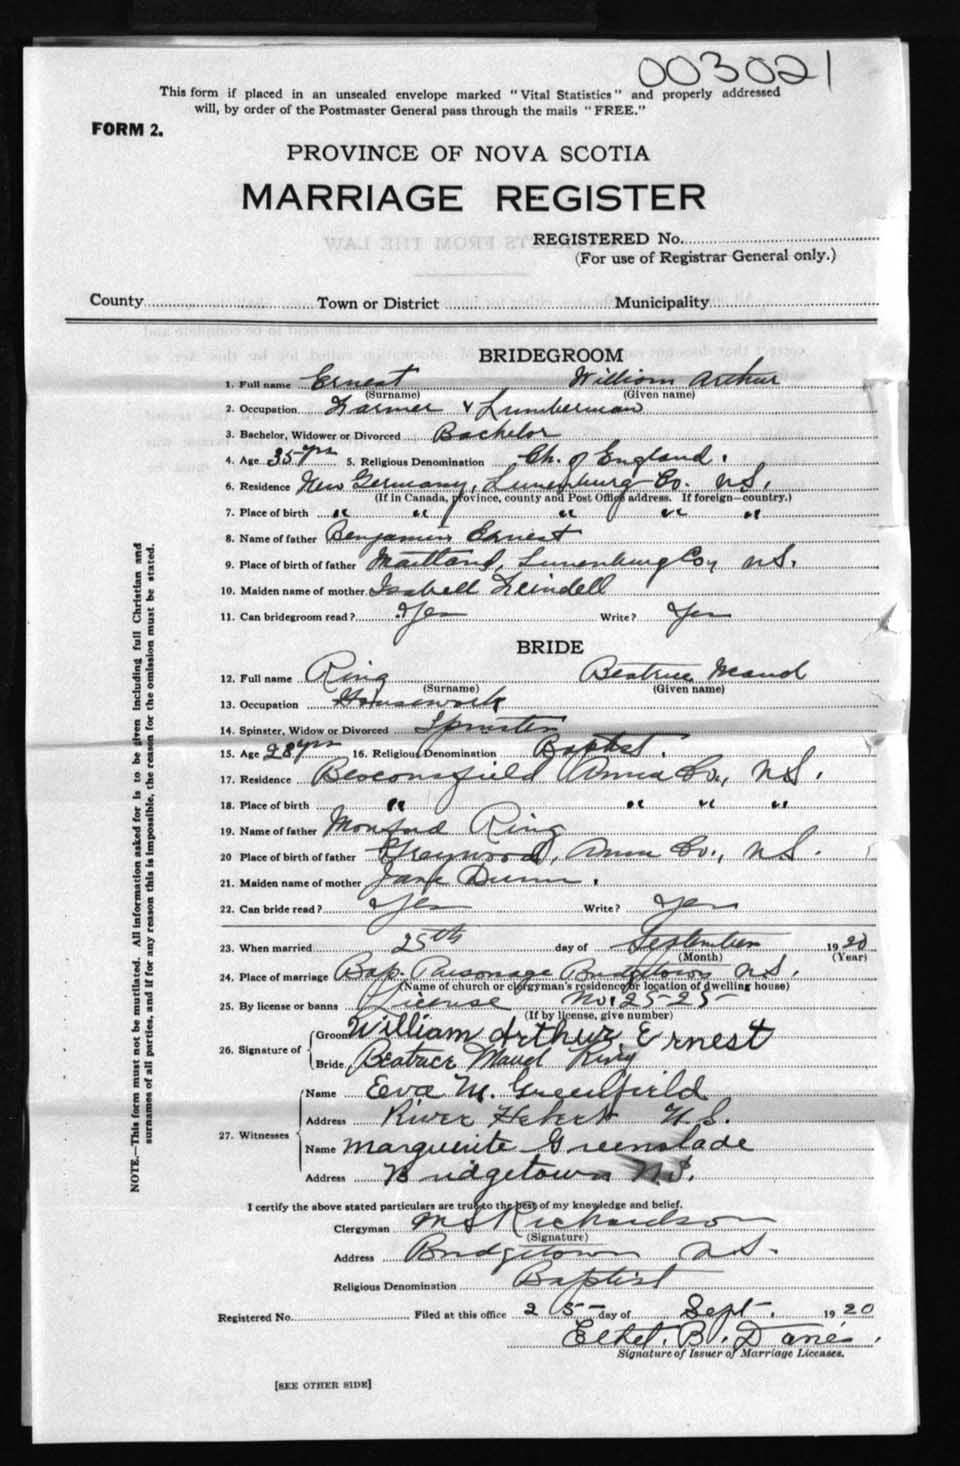 003021
This form if placed in an unsealed envelope marked "Vital Statistics" and properly addressed
will, by order of the Postmaster General pass through the mails "FREE."
FORM 2.
PROVINCE OF NOVA SCOTIA
MARRIAGE REGISTER
REGISTERED No.
(For use of Registrar General only.)
County Town or District Municipality
BRIDEGROOM
1. Full name Ernest William Arthur
(Surname) (Given name)
2. Occupation Farmer & Lumberman
3. Bachelor, Widower or Divorced Bachelor
4. Age 35 yrs 5. Religious Denomination Ch. of England.
6. Residence New Germany, Lunenburg Co. N.S.
(If in Canada, province, county and Post Office address. If foreign—country.)
7. Place of birth " " " " "
8. Name of father Benjamin Ernest
9. Place of birth of father Maitland, Lunenburg Co, N.S.
10. Maiden name of mother Isabell Feindell
11. Can bridegroom read? Yes Write? Yes
BRIDE
12. Full name Ring Beatrice Maud
(Surname) (Given name)
13. Occupation Housework
14. Spinster, Widow or Divorced Spinster
15. Age 28 yrs 16. Religious Denomination Baptist.
17. Residence Beaconsfield Anna Co., N.S.
18. Place of birth " " " "
19. Name of father Ring
20 Place of birth of father Graywood, Anna Co., N.S.
21. Maiden name of mother Jane Dunn.
22. Can bride read? Yes Write? Yes
23. When married 25th day of September 1920
(Month) (Year)
24. Place of marriage Bap. Parsonage Bridgetown N.S.
(Name of church or clergyman's residence or location of dwelling house)
25. By license or banns License No. 25-25-
(If by license, give number)
26. Signature of
Groom William Arthur Ernest
Bride Beatrice Maud Ring
27. Witnesses
Name Eva M. Greenfield
Address River Hebert N.S.
Name Marguerite Greenslade
Address Bridgetown N.S.
I certify the above stated particulars are true to the best of my knowledge and belief.
Clergyman M S Richardson
(Signature)
Address Bridgetown N.S.
Religious Denomination Baptist
Registered No. Filed at this office 25- day of Sept. 1920
Ethel. B. Davies.
Signature of Issuer of Marriage Licenses.
[SEE OTHER SIDE]
NOTE.—This form must not be mutilated. All information asked for is to be given including full Christian and
surnames of all parties, and if for any reason this is impossible, the reason for the omission must be stated.